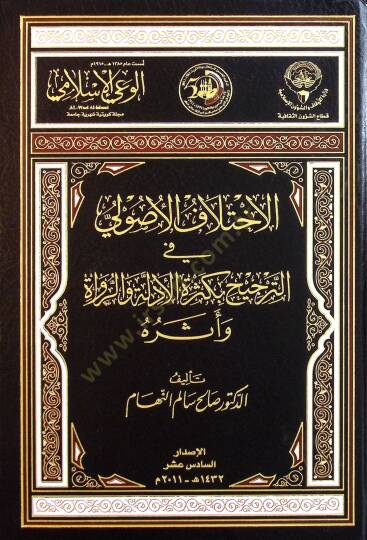 أسست عام ١٣٨٥هـ - ١٩٦٥م
الوعي الإسلامي
AL-Waei AL-Islami
مجلة كويتية شهرية جامعة
قطاع الشؤون الثقافية
الاختلاف الأصولي
في
الترجيح بكثرة الأدلة والرواة
وأثره
تأليف
الدكتور صالح سالم النهام
الإصدار
السادس عشر
١٤٣٢هـ - ٢٠١١م